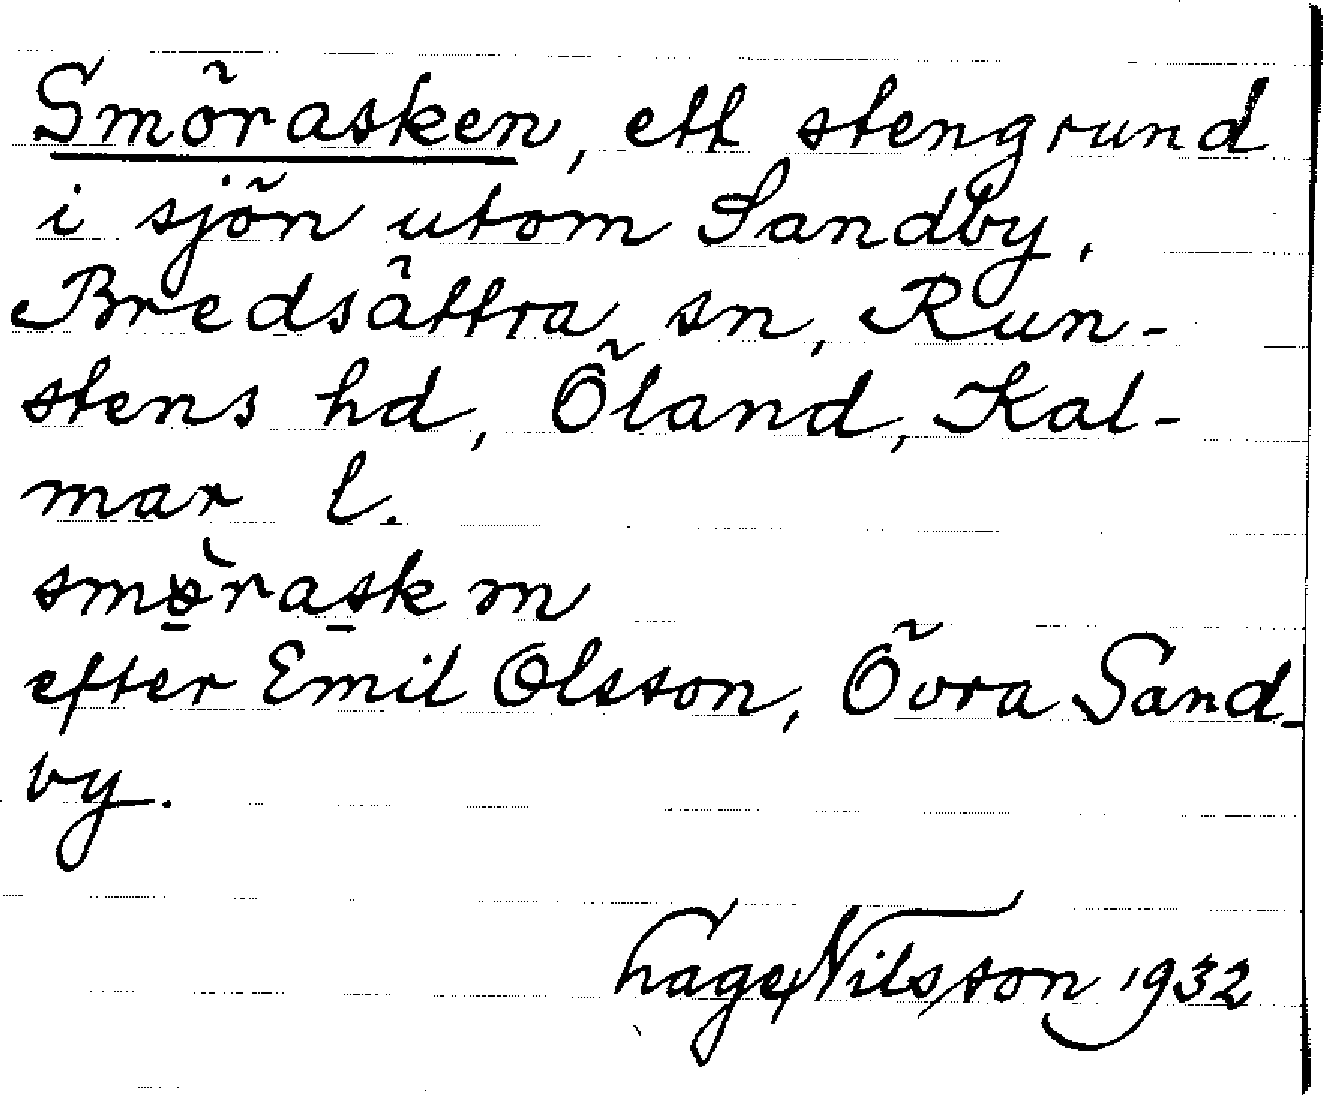 Smörasken, ett stengrund
i sjön utom Sandby,
Bredsättra sn, Run-
stens hd, Öland, Kal-
mar l.
efter Emil Olsson, Övra Sand-
by.
Hage Nilsson 1932